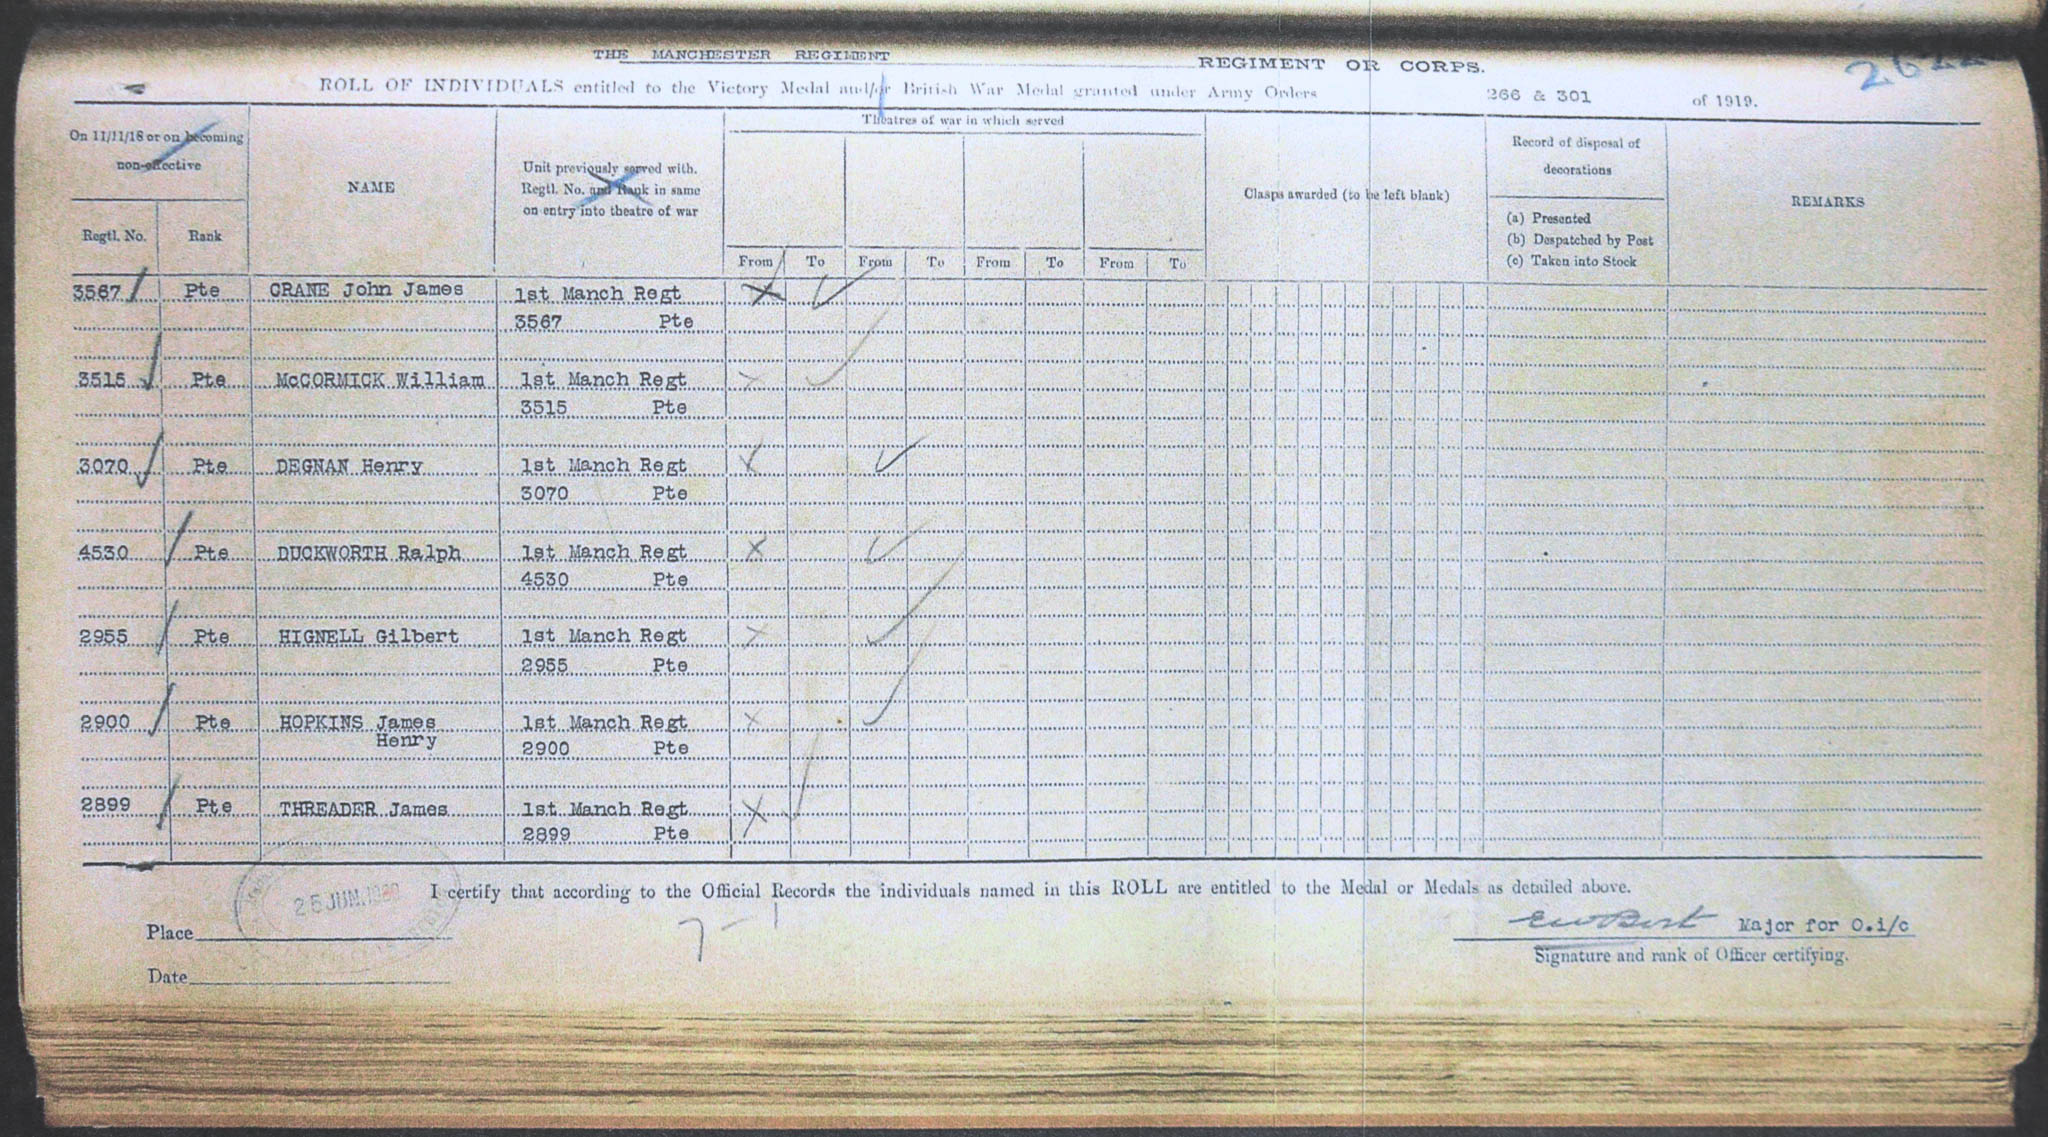 THE MANCHESTER REGIMENT REGIMENT OR CORPS.
ROLL OF INDIVIDUALS entitled to the Victory Medal and/or British War Medal granted under Army Orders 266 & 301 of 1919.
On 11/11/18 or on becoming non-effective
Regtl. No.
Rank
NAME
Unit previously served with.
Regtl. No. and Rank in same
on entry into theatre of war
Theatres of war in which served
From To From To From To From To
Clasps awarded (to be left blank)
Record of disposal of
decorations
(a) Presented
(b) Despatched by Post
(c) Taken into Stock
REMARKS
3567 Pte CRANE John James 1st Manch Regt
3567 Pte
3515 Pte McCORMICK William 1st Manch Regt
3515 Pte
3070 Pte DEGNAN Henry 1st Manch Regt
3070 Pte
4530 Pte DUCKWORTH Ralph 1st Manch Regt
4530 Pte
2955 Pte HIGNELL Gilbert 1st Manch Regt
2955 Pte
2900 Pte HOPKINS James 1st Manch Regt
Henry 2900 Pte
2899 Pte THREADER James 1st Manch Regt
2899 Pte
I certify that according to the Official Records the individuals named in this ROLL are entitled to the Medal or Medals as detailed above.
25 JUN 1920
7-1
Place
Major for O.i/c
Signature and rank of Officer certifying.
Date